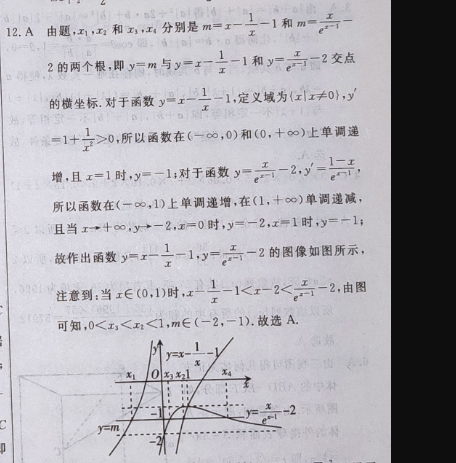 12. A 由题,x₁,x₂ 和 x₃,x₄ 分别是 m=x-1/x-1 和 m=x/e^(x-1)-
2 的两个根,即 y=m 与 y=x-1/x-1 和 y=x/e^(x-1)-2 交点
的横坐标. 对于函数 y=x-1/x-1,定义域为{x|x≠0},y′
=1+1/x²>0,所以函数在(-∞,0)和(0,+∞)上单调递
增,且 x=1 时,y=-1;对于函数 y=x/e^(x-1)-2,y′=(1-x)/e^(x-1),
所以函数在(-∞,1)上单调递增,在(1,+∞)单调递减,
且当 x→+∞,y→-2,x=0 时,y=-2,x=1 时,y=-1;
故作出函数 y=x-1/x-1,y=x/e^(x-1)-2 的图像如图所示,
注意到:当 x∈(0,1)时,x-1/x-1<x-2<x/e^(x-1)-2,由图
可知,0<x₃<x₂<1,m∈(-2,-1). 故选 A.
y y=x-1/x-1
x₁ O x₃ x₂ 1 x₄ x
-1
y=x/e^(x-1)-2
y=m
-2